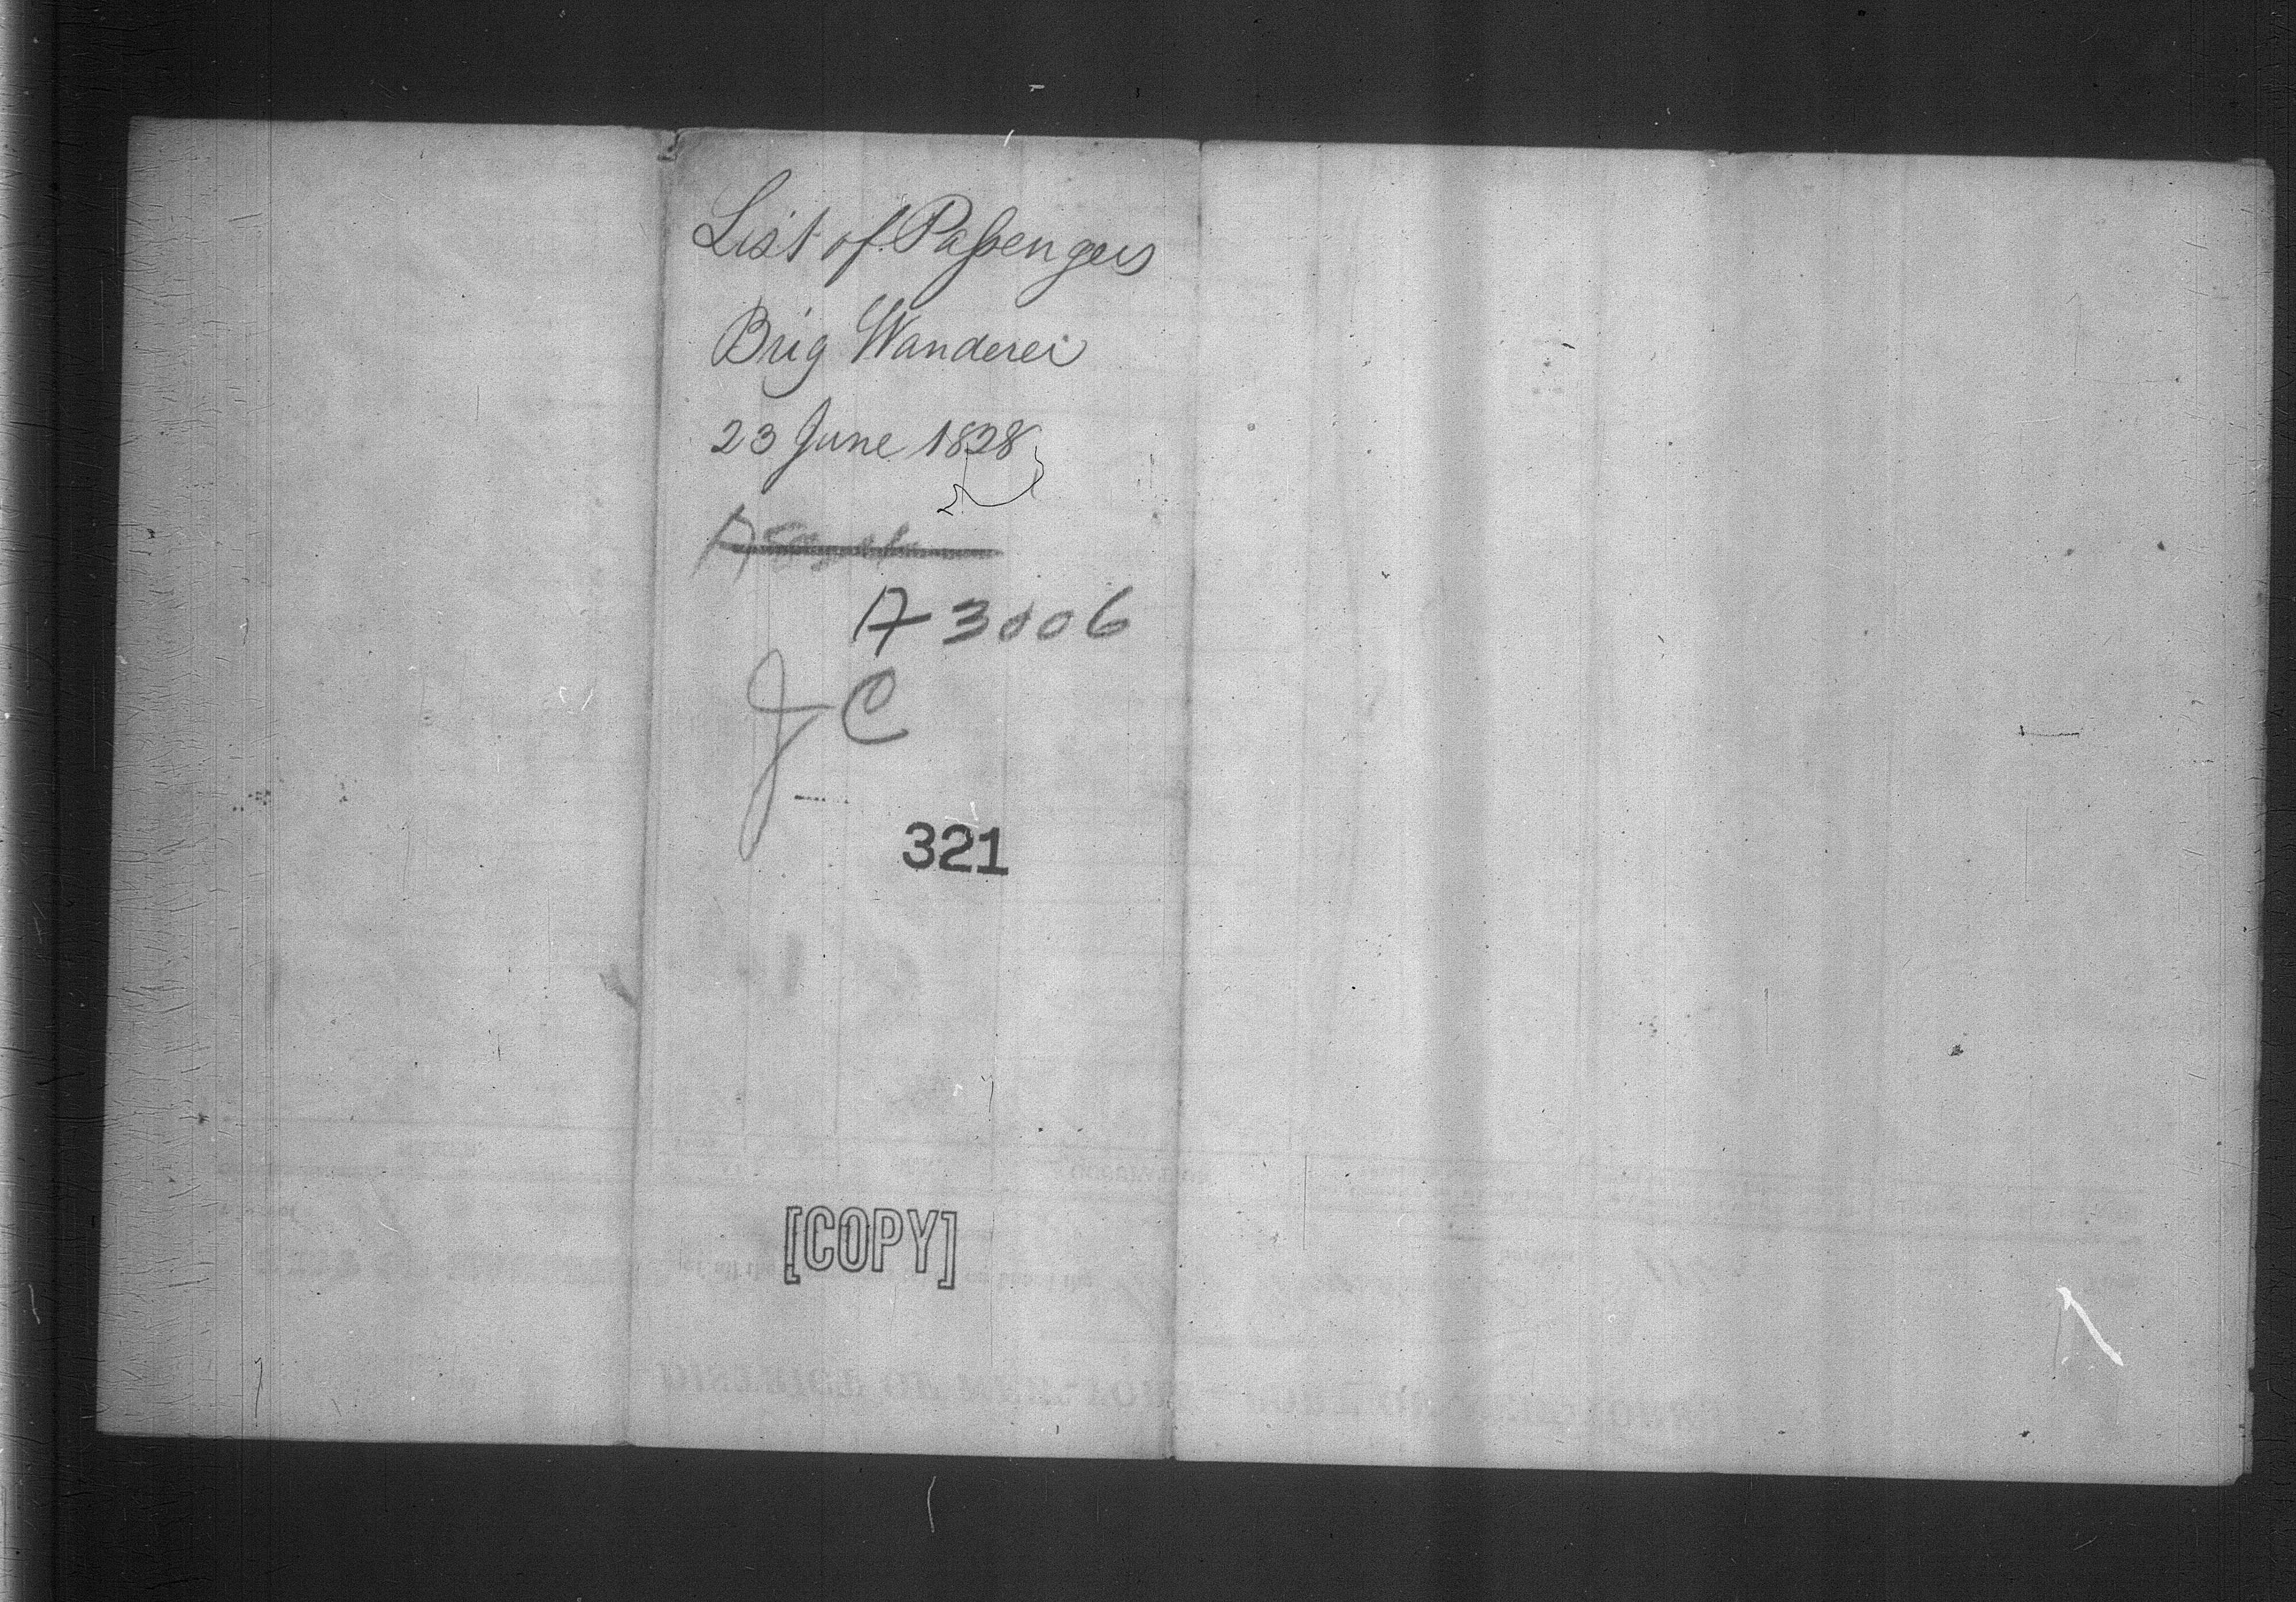 List of Passengers
Brig Wanderer
23 June 1828
A 3006
JC
321
[COPY]